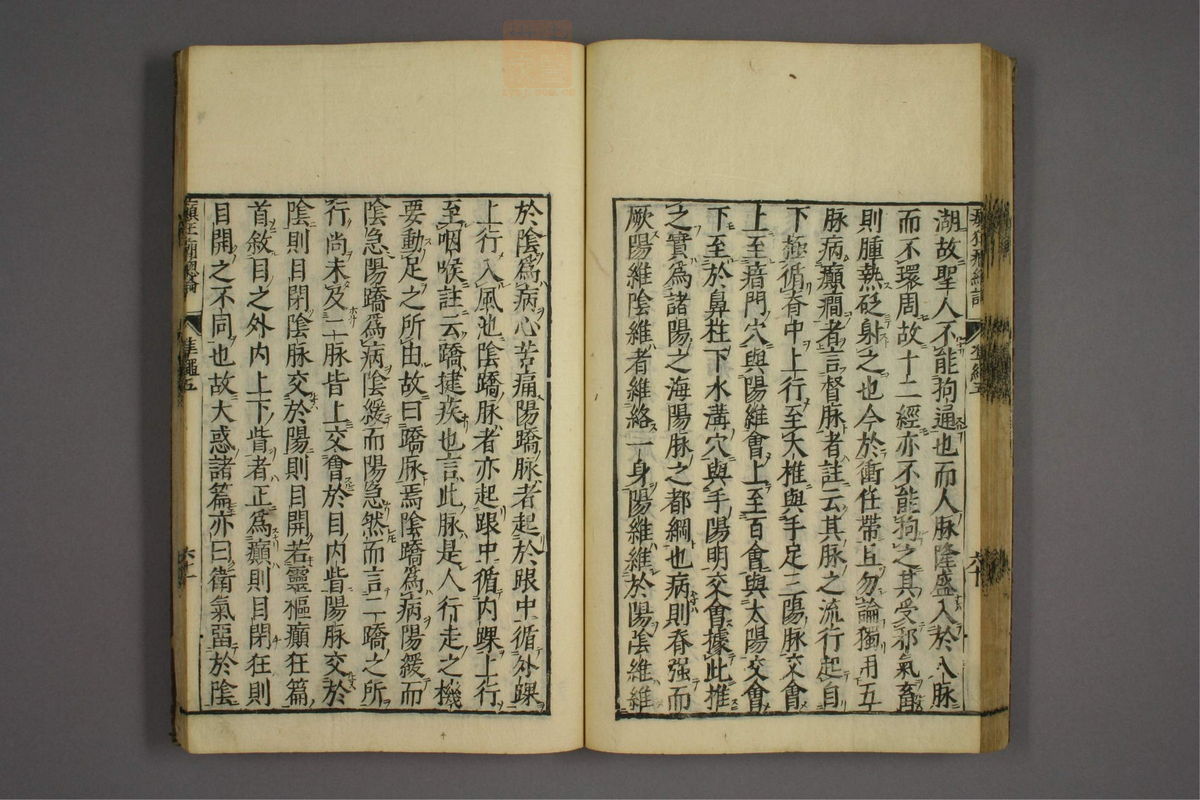 湖故聖人不能拘通也而人脉隆盛入於八脉
而不環周故十二經亦不能拘之其受邪氣畜
則腫熱砭射之也今於衝任帶且勿論獨用五
脉病癲癇者言督脉者註云其脉之流行起自
下極循脊中上行至大椎與手足三陽脉交會
上至瘖門穴與陽維會上至百會與太陽交會
下至於鼻柱下水溝穴與手陽明交會據此推
之實爲諸陽之海陽脉之都綱也病則脊强而
厥陽維陰維者維絡一身陽維維於陽陰維維
於陰爲病心苦痛陽蹻脉者起於跟中循外踝
上行入風池陰蹻脉者亦起跟中循内踝上行
至咽喉註云蹻捷疾也言此脉是人行走之機
要動足之所由故曰蹻脉焉陰蹻爲病陽緩而
陰急陽蹻爲病陰緩而陽急然而言二蹻之所
行尚未及二脉皆上交會於目内眥陽脉交於
陰則目閉陰脉交於陽則目開若靈樞癲狂篇
首敘目之外内上下眥者正爲癲則目閉狂則
目開之不同也故大惑諸篇亦曰衛氣畱於陰
六十一